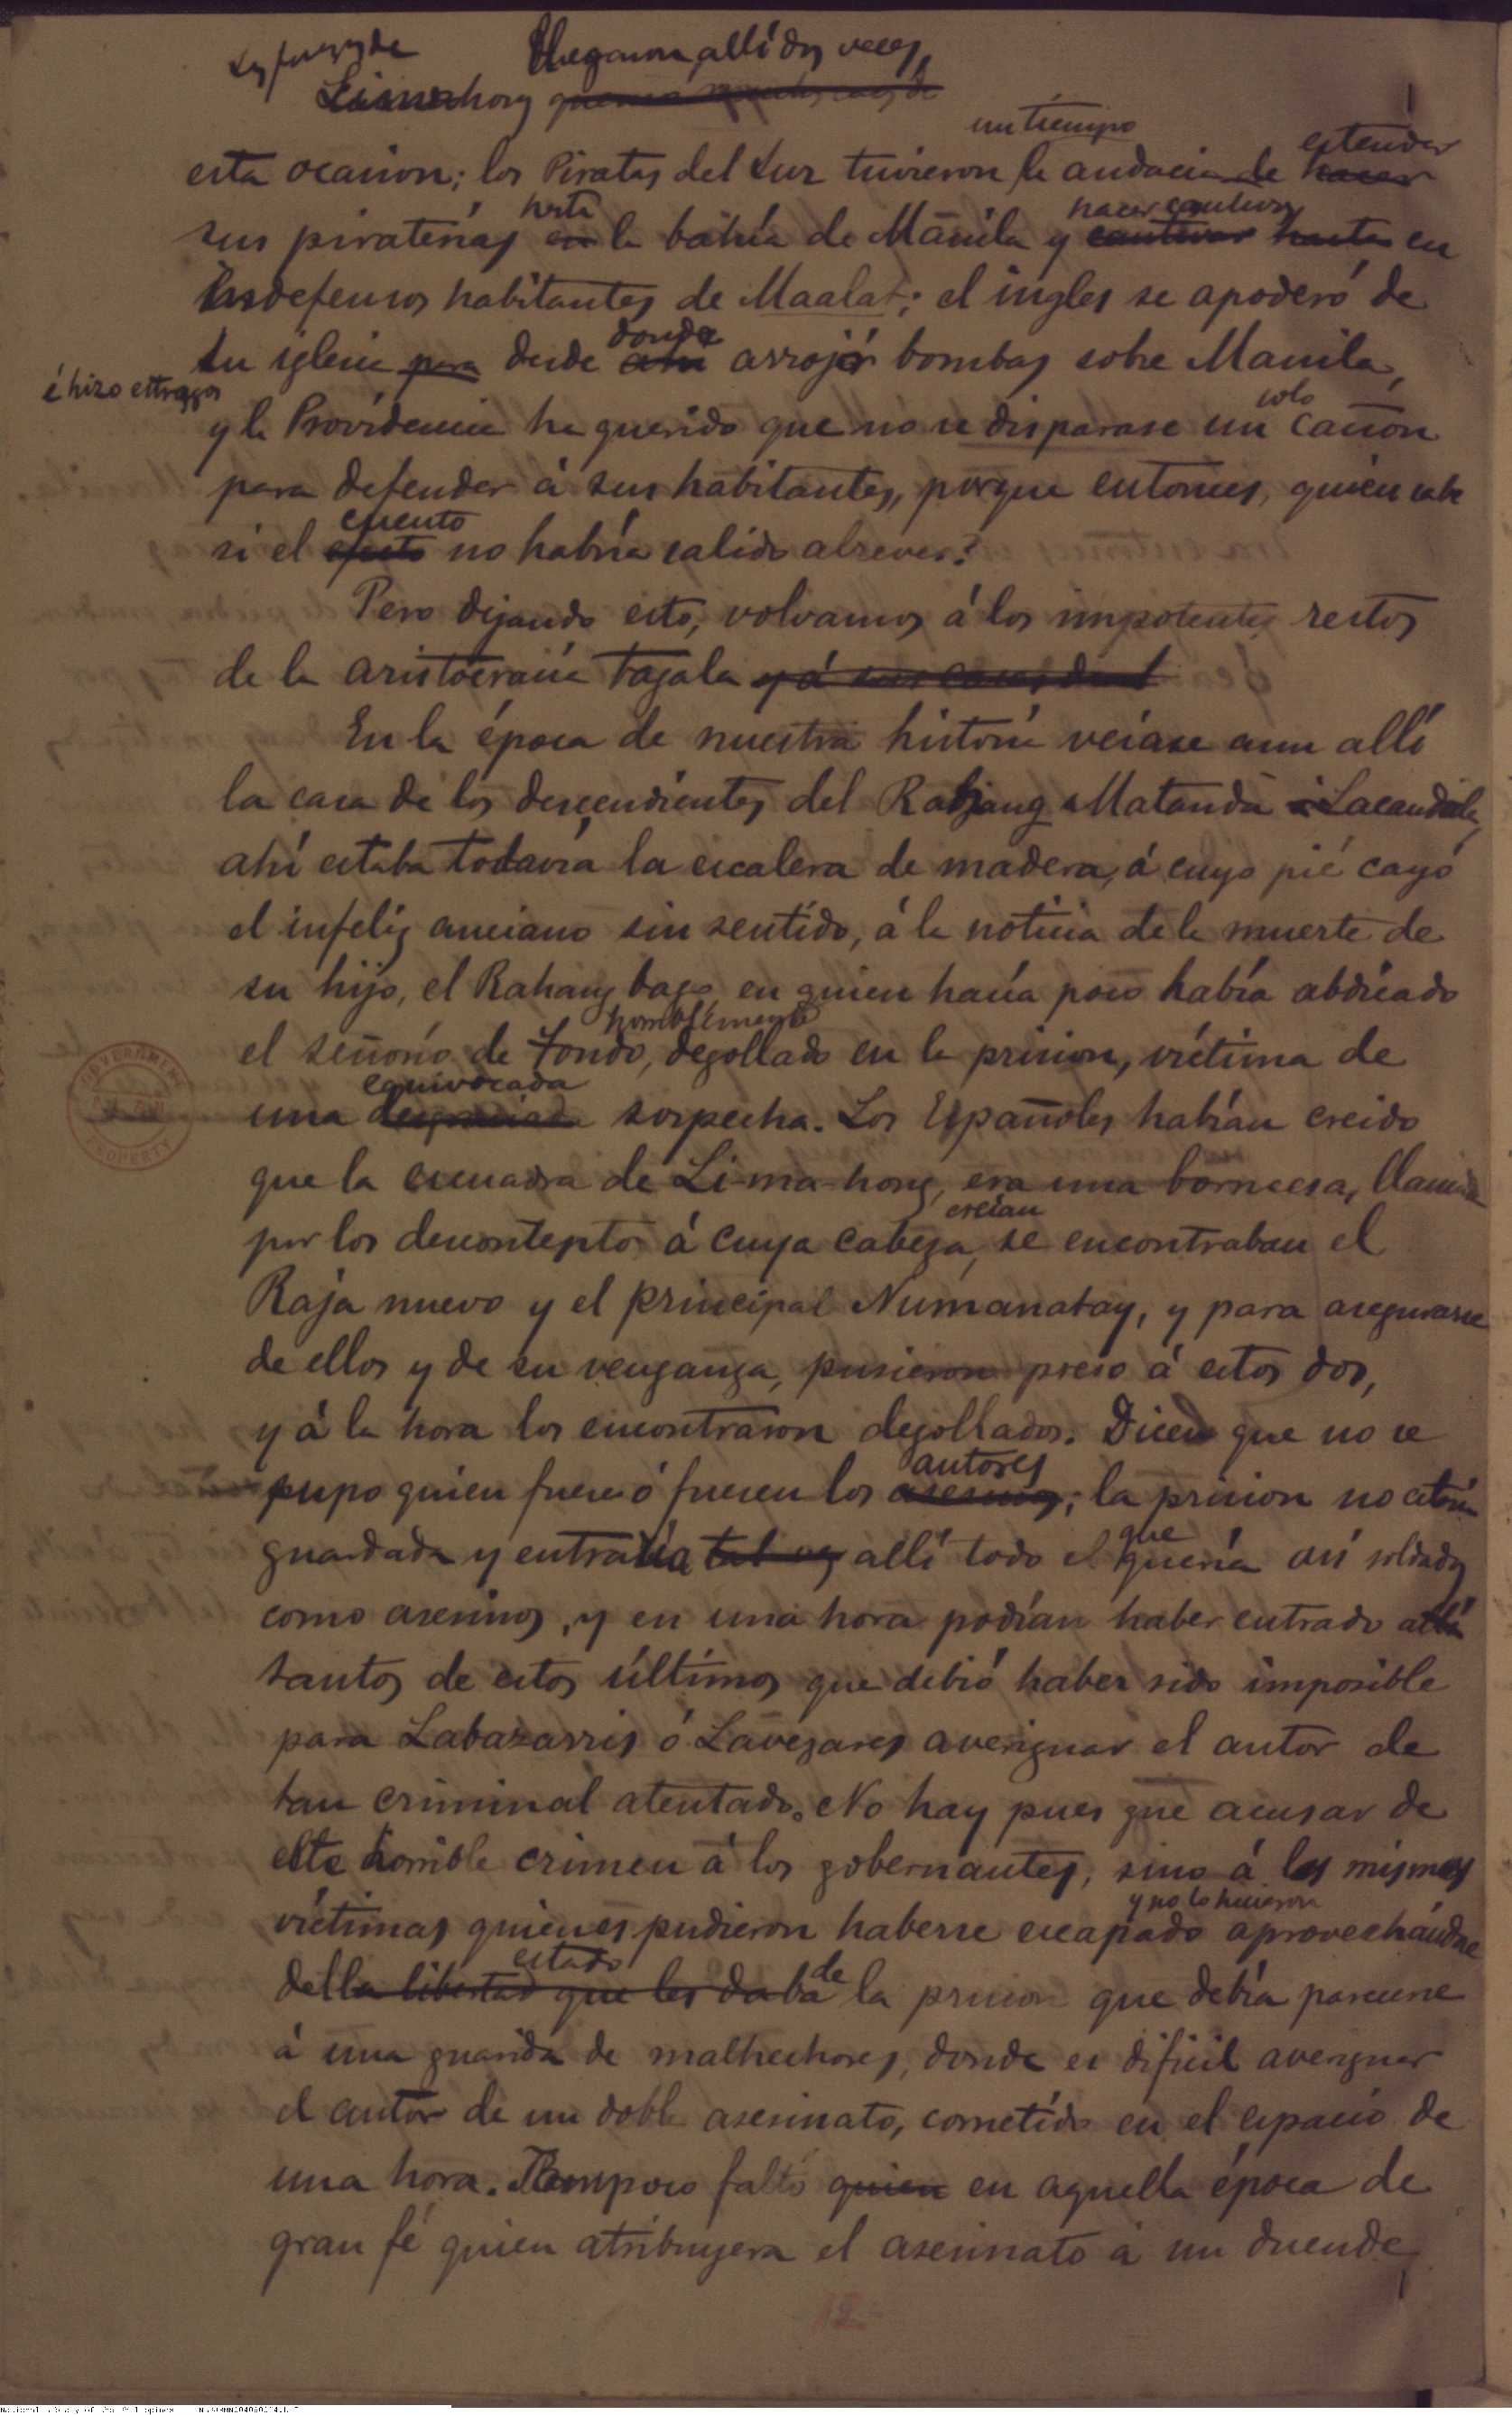 las fuerzas de llegaron allí dos veces,
Limahong
un tiempo estender
esta ocasion; los Piratas del Sur tuvieron la audacia de hacer
hasta hacer cautivos
sus piraterías en la bahía de Manila y cautivar hasta en
indefensos habitantes de Maalat; el ingles se apoderó de
donde
su iglesia para desde ahi arrojar bombas sobre Manila,
é hizo estragos
solo
y la Providencia ha querido que no se disparase un cañon
para defender á sus habitantes, porque entonces, quien sabe
cuento
si el efecto no habría salido al reves?
Pero dejando esto, volvamos á los impotentes restos
de la aristocracia tagala y á sus casas de
En la época de nuestra historia veíase aun allí
la casa de los descendientes del Rahjang Matanda Lacandola,
ahí estaba todavía la escalera de madera, á cuyo pié cayó
el infeliz anciano sin sentido, á la noticia de la muerte de
su hijo, el Rahang bago, en quien hacía poco había abdicado
horriblemente
el señorío de Tondo, degollado en la prision, víctima de
equivocada
una desgraciada sospecha. Los Españoles habían creido
que la escuadra de Li-ma-hong, era una borneesa, llamada
creían
por los descontentos á cuya cabeza, se encontraban el
Raja nuevo y el principal Numanatay, y para asegurarse
de ellos y de su venganza, pusieron preso á estos dos,
y á la hora los encontraron degollados. Dicen que no se
autores
supo quien fuere ó fuesen los asesinos; la prision no estaría
que
guardada y entraría tal vez allí todo el quería así soldados
como asesinos, y en una hora podían haber entrado allí
tantos de estos últimos que debió haber sido imposible
para Labazarris ó Lavezares averiguar el autor de
tan criminal atentado. No hay pues que acusar de
este horrible crimen á los gobernantes, sino á las mismas
y no lo hicieron
víctimas quienes pudieron haberse escapado aprovechándose
estado de
della libertad que les daba la prision que debía parecerse
á una guarida de malhechores, donde es dificil averiguar
el autor de un doble asesinato, cometido en el espacio de
una hora. Tampoco faltó quien en aquella época de
gran fé quien atribuyera el asesinato á un duende,
GOVERNMENT
PROPERTY
12
National Library of the Philippines